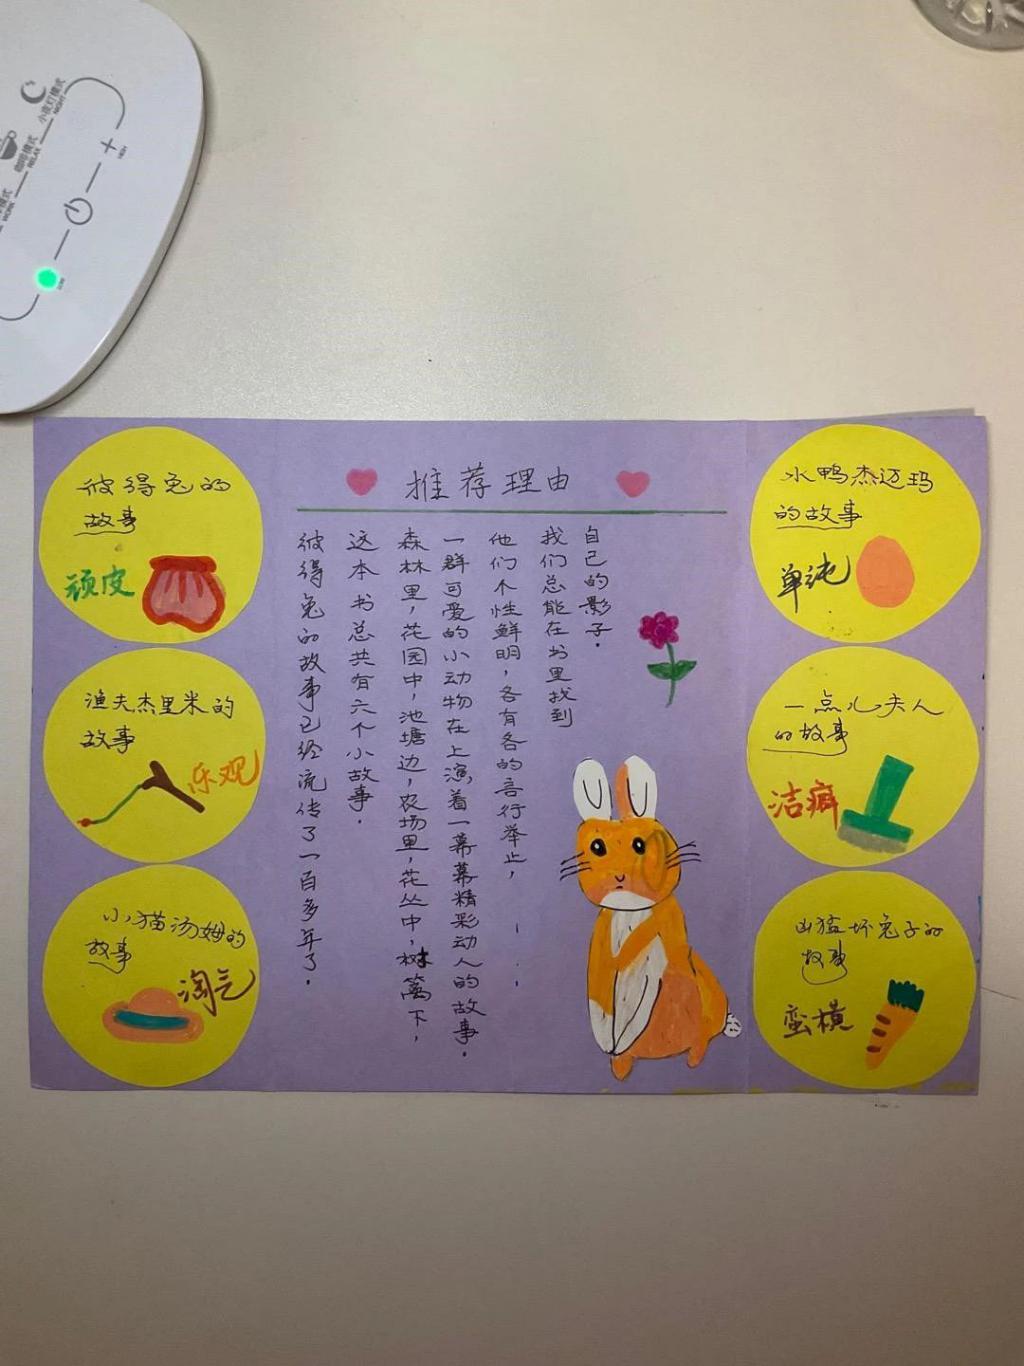 小夜灯模式
NIGHT
咖啡模式
RELAX
模式
WORK
+
HIGH
LOW
彼得兔的
故事
顽皮
渔夫杰里米的
故事
乐观
小猫汤姆的
故事
淘气
推荐理由
彼得兔的故事已经流传了一百多年了.
这本书总共有六个小故事.
森林里,花园中,池塘边,农场里,花丛中,树篱下,
一群可爱的小动物在上演着一幕幕精彩动人的故事.
他们个性鲜明,各有各的言行举止,
我们总能在书里找到
自己的影子.
水鸭杰迈玛
的故事
单纯
一点儿夫人
的故事
洁癖
凶猛坏兔子的
故事
蛮横